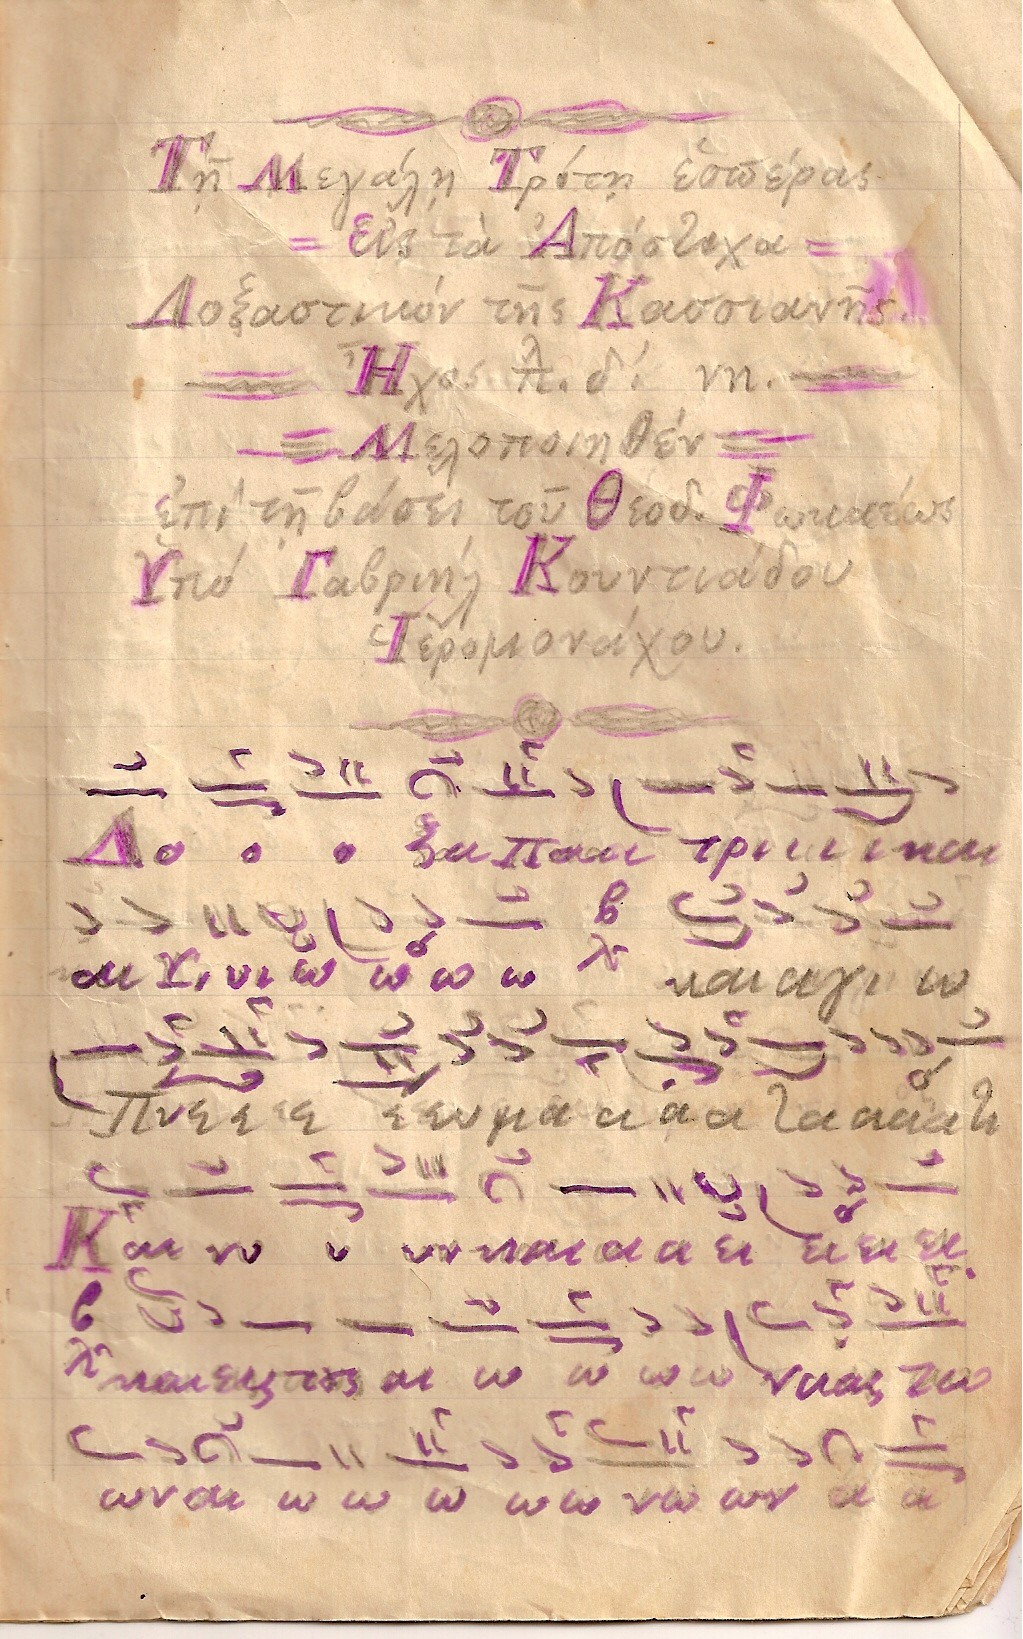 Τῇ Μεγάλῃ Τρίτῃ ἑσπέρας
= Εἰς τὰ Ἀπόστιχα =
Δοξαστικόν τῆς Κασσιανῆς.
Ἦχος πλ. δ΄. νη.
Μελοποιηθέν
ἐπί τῇ βάσει τοῦ Θεοδ. Φωκαέως
Ὑπό Γαβριήλ Κουντιάδου
Ἱερομονάχου.
Δο ο ο ο ξα Πα α τρι ι ι ι και
αι Υι υι ω ω ω ω και αγι ω
Πνε ε ε ε ευμα α α α τα α α α τι
Και νυ υ υν και α α ει ει ει ει
και εις τας αι ω ω ω ω νας τω
ων αι ω ω ω ω ω νω ων α α